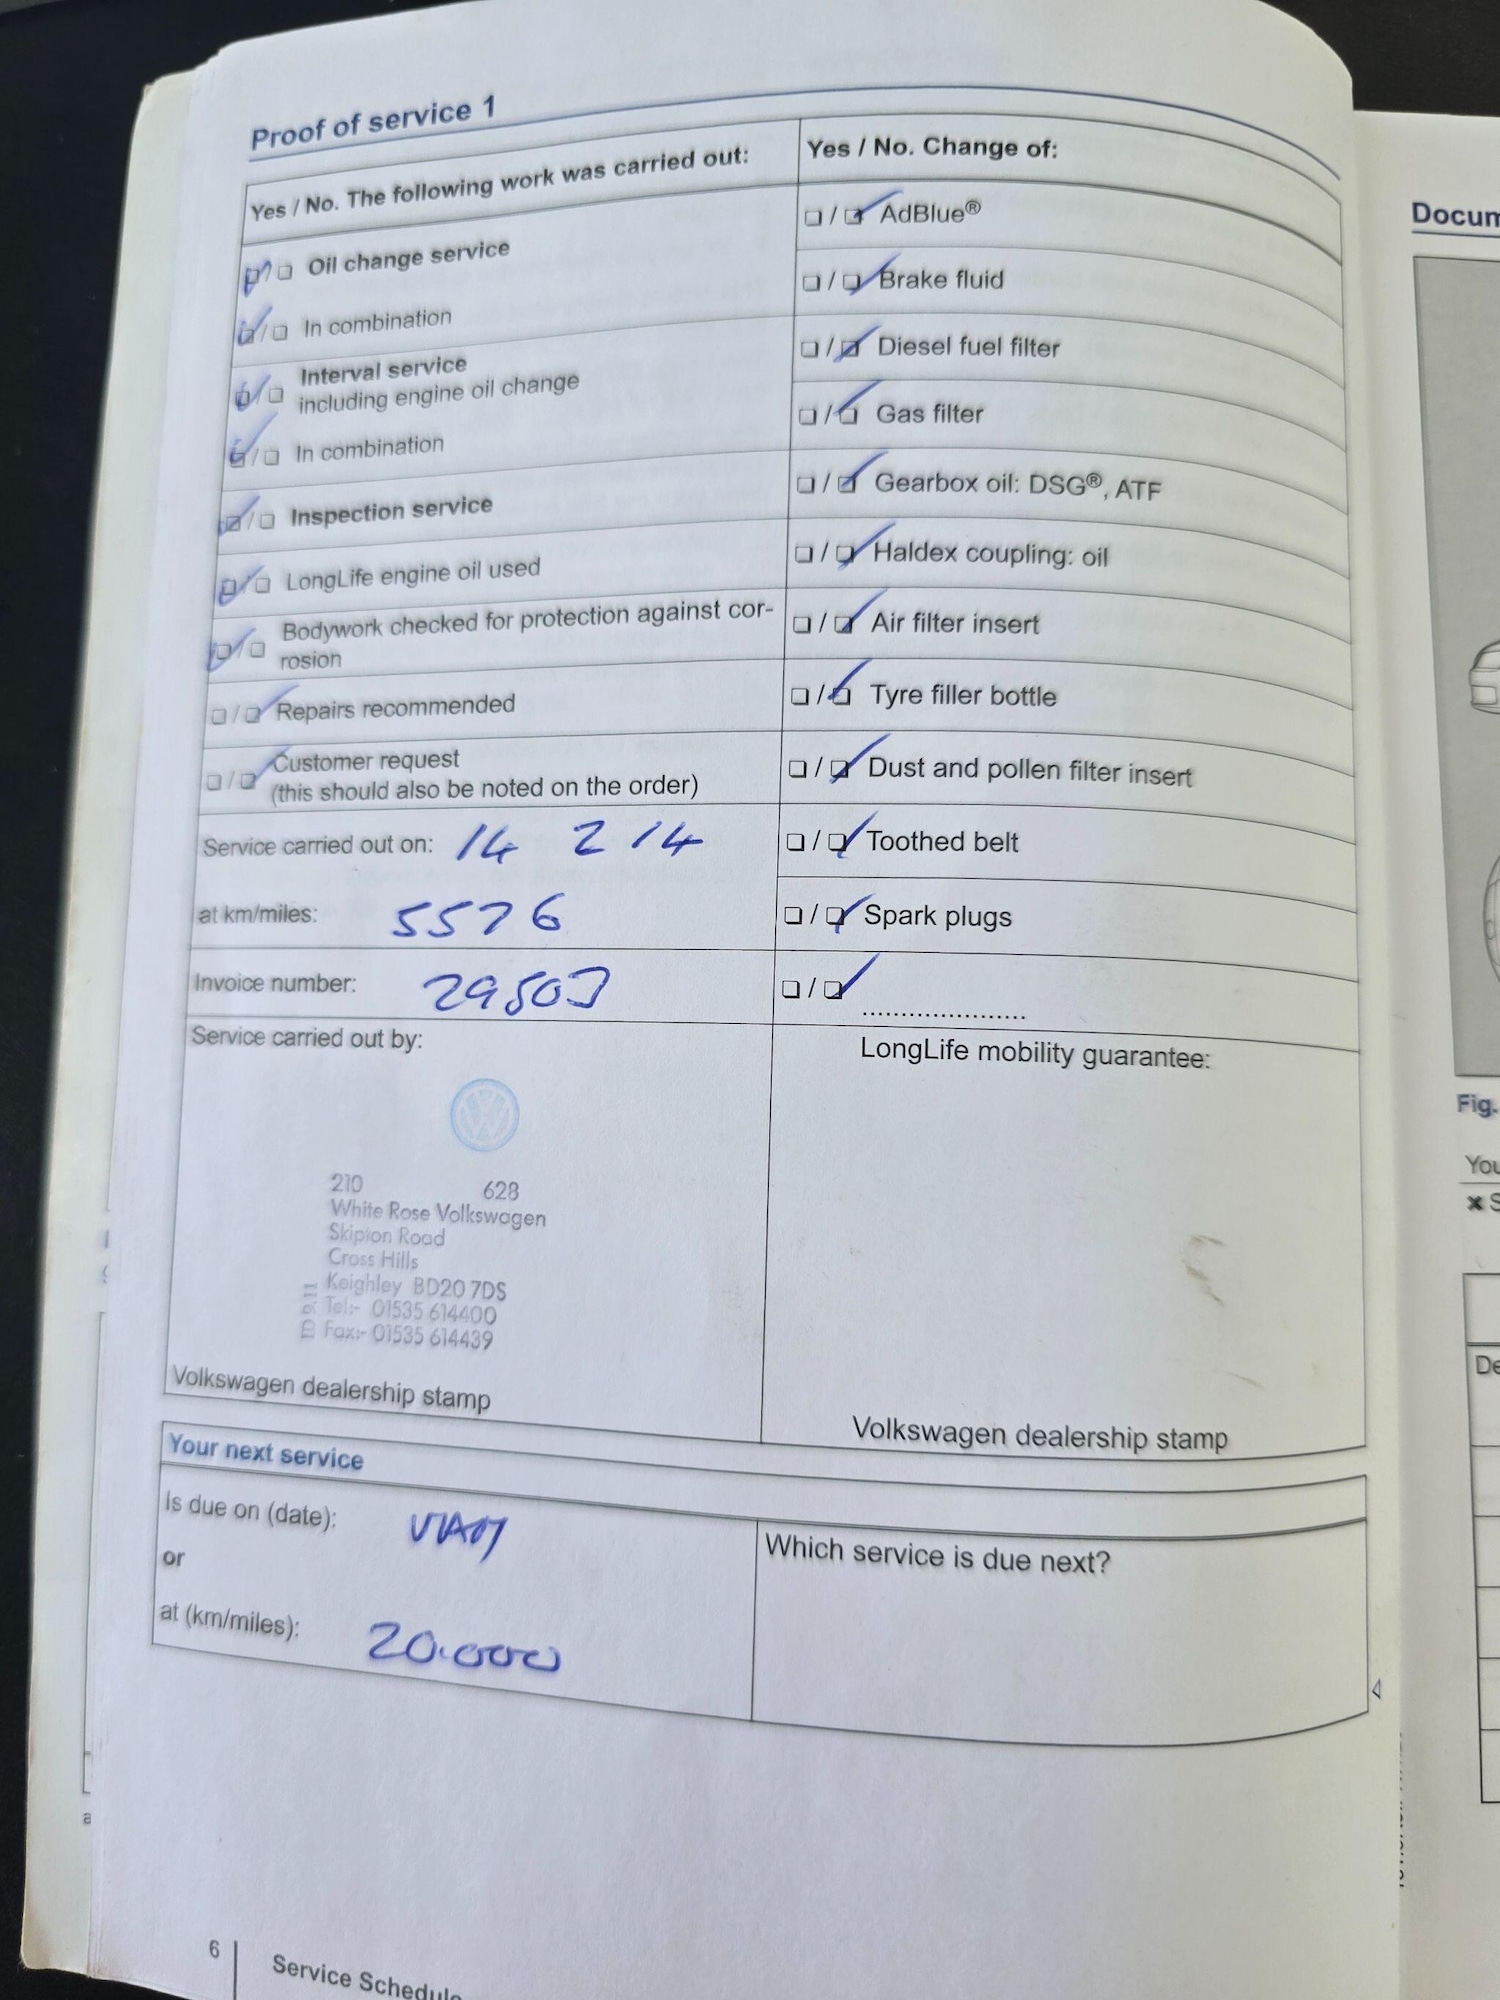 Proof of service 1
Yes / No. The following work was carried out:
Oil change service
In combination
Interval service
including engine oil change
In combination
Inspection service
LongLife engine oil used
Bodywork checked for protection against cor-
rosion
Repairs recommended
Customer request
(this should also be noted on the order)
Service carried out on: 14 2 14
at km/miles: 5576
Invoice number:
Service carried out by:
210 628
White Rose Volkswagen
Skipton Road
Cross Hills
Keighley BD20 7DS
Tel:- 01535 614400
Fax:- 01535 614439
Volkswagen dealership stamp
Yes / No. Change of:
AdBlue®
Brake fluid
Diesel fuel filter
Gas filter
Gearbox oil: DSG®, ATF
Haldex coupling: oil
Air filter insert
Tyre filler bottle
Dust and pollen filter insert
Toothed belt
Spark plugs
LongLife mobility guarantee:
Volkswagen dealership stamp
Your next service
Is due on (date):
or
at (km/miles): 20.000
Which service is due next?
6 Service Schedule
Docum
Fig.
You
De